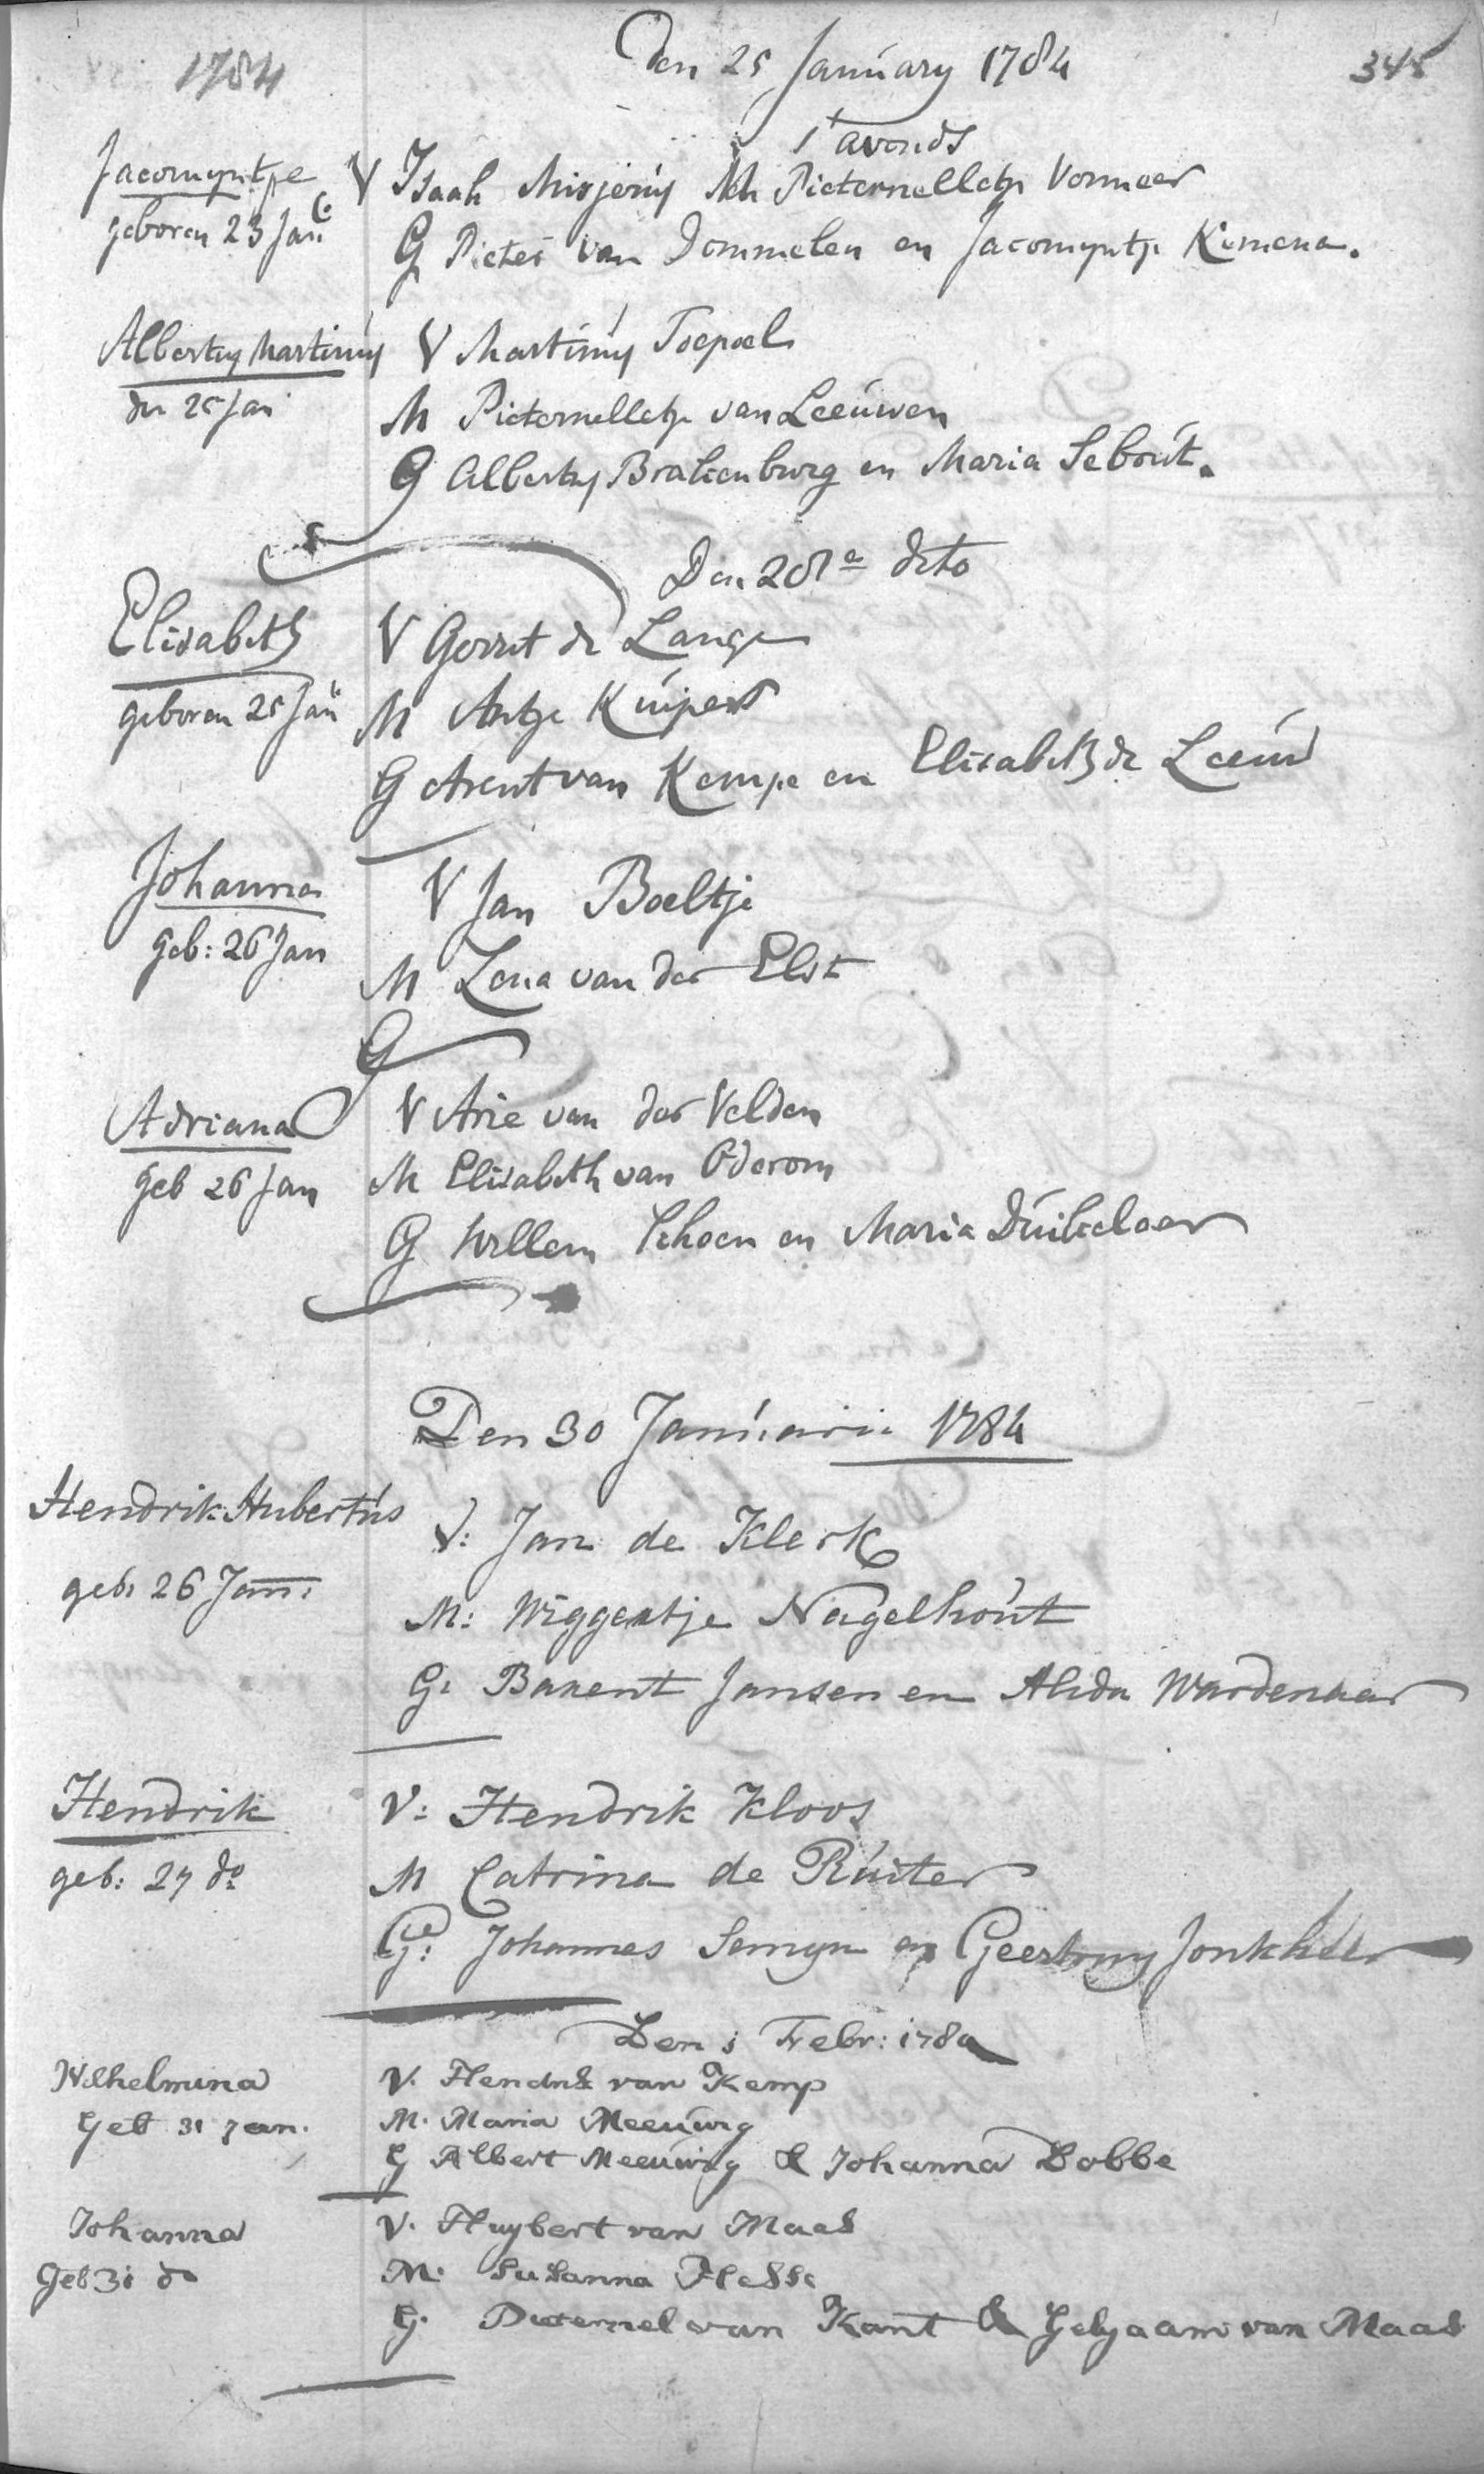 1784
Den 25 January 1784
345
s'avonds
Jacomyntje V Isaak Misjerus M Pieternelletje Vermeer
geboren 23 Jan
G Pieter van Dommelen en Jacomyntje Kemena.
Albertus Martinus V Martinus Toepoel
den 25 Jan
M Pieternelletje van Leeuwen
G Albertus Brakenburg en Maria Sebout.
Den 28e dito
Elisabeth V Gerrit de Lange
geboren 25 Jan M Antje Kuipers
G Arent van Kempe en Elisabeth de Leeuw
Johanna V Jan Boeltje
geb: 26 Jan M Lena van der Elst
G
Adriana V Arie van der Velden
geb 26 Jan M Elisabeth van Oderom
G Willem Schoen en Maria Duikelaer
Den 30 Januari 1784
Hendrik Hubertus V: Jan de Klerk
geb: 26 Jan:
M: Wiggertje Nagelhout
G: Barent Jansen en Alida Wardenaar
Hendrik V: Hendrik Kloos
geb: 27 do M Catrina de Ruiter
Ge: Johannes Semyn en Geertruy Jonkheer
Den 1 Febr: 1784
Wilhelmina V. Hendrik van Kemp
Geb 31 Jan. M. Maria Meeuwig
G Albert Meeuwig & Johanna Dobbe
Johanna V. Huybert van Maas
Geb 31 do M. Susanna Hesse
G. Pieternel van Kant & Gelyaam van Maas